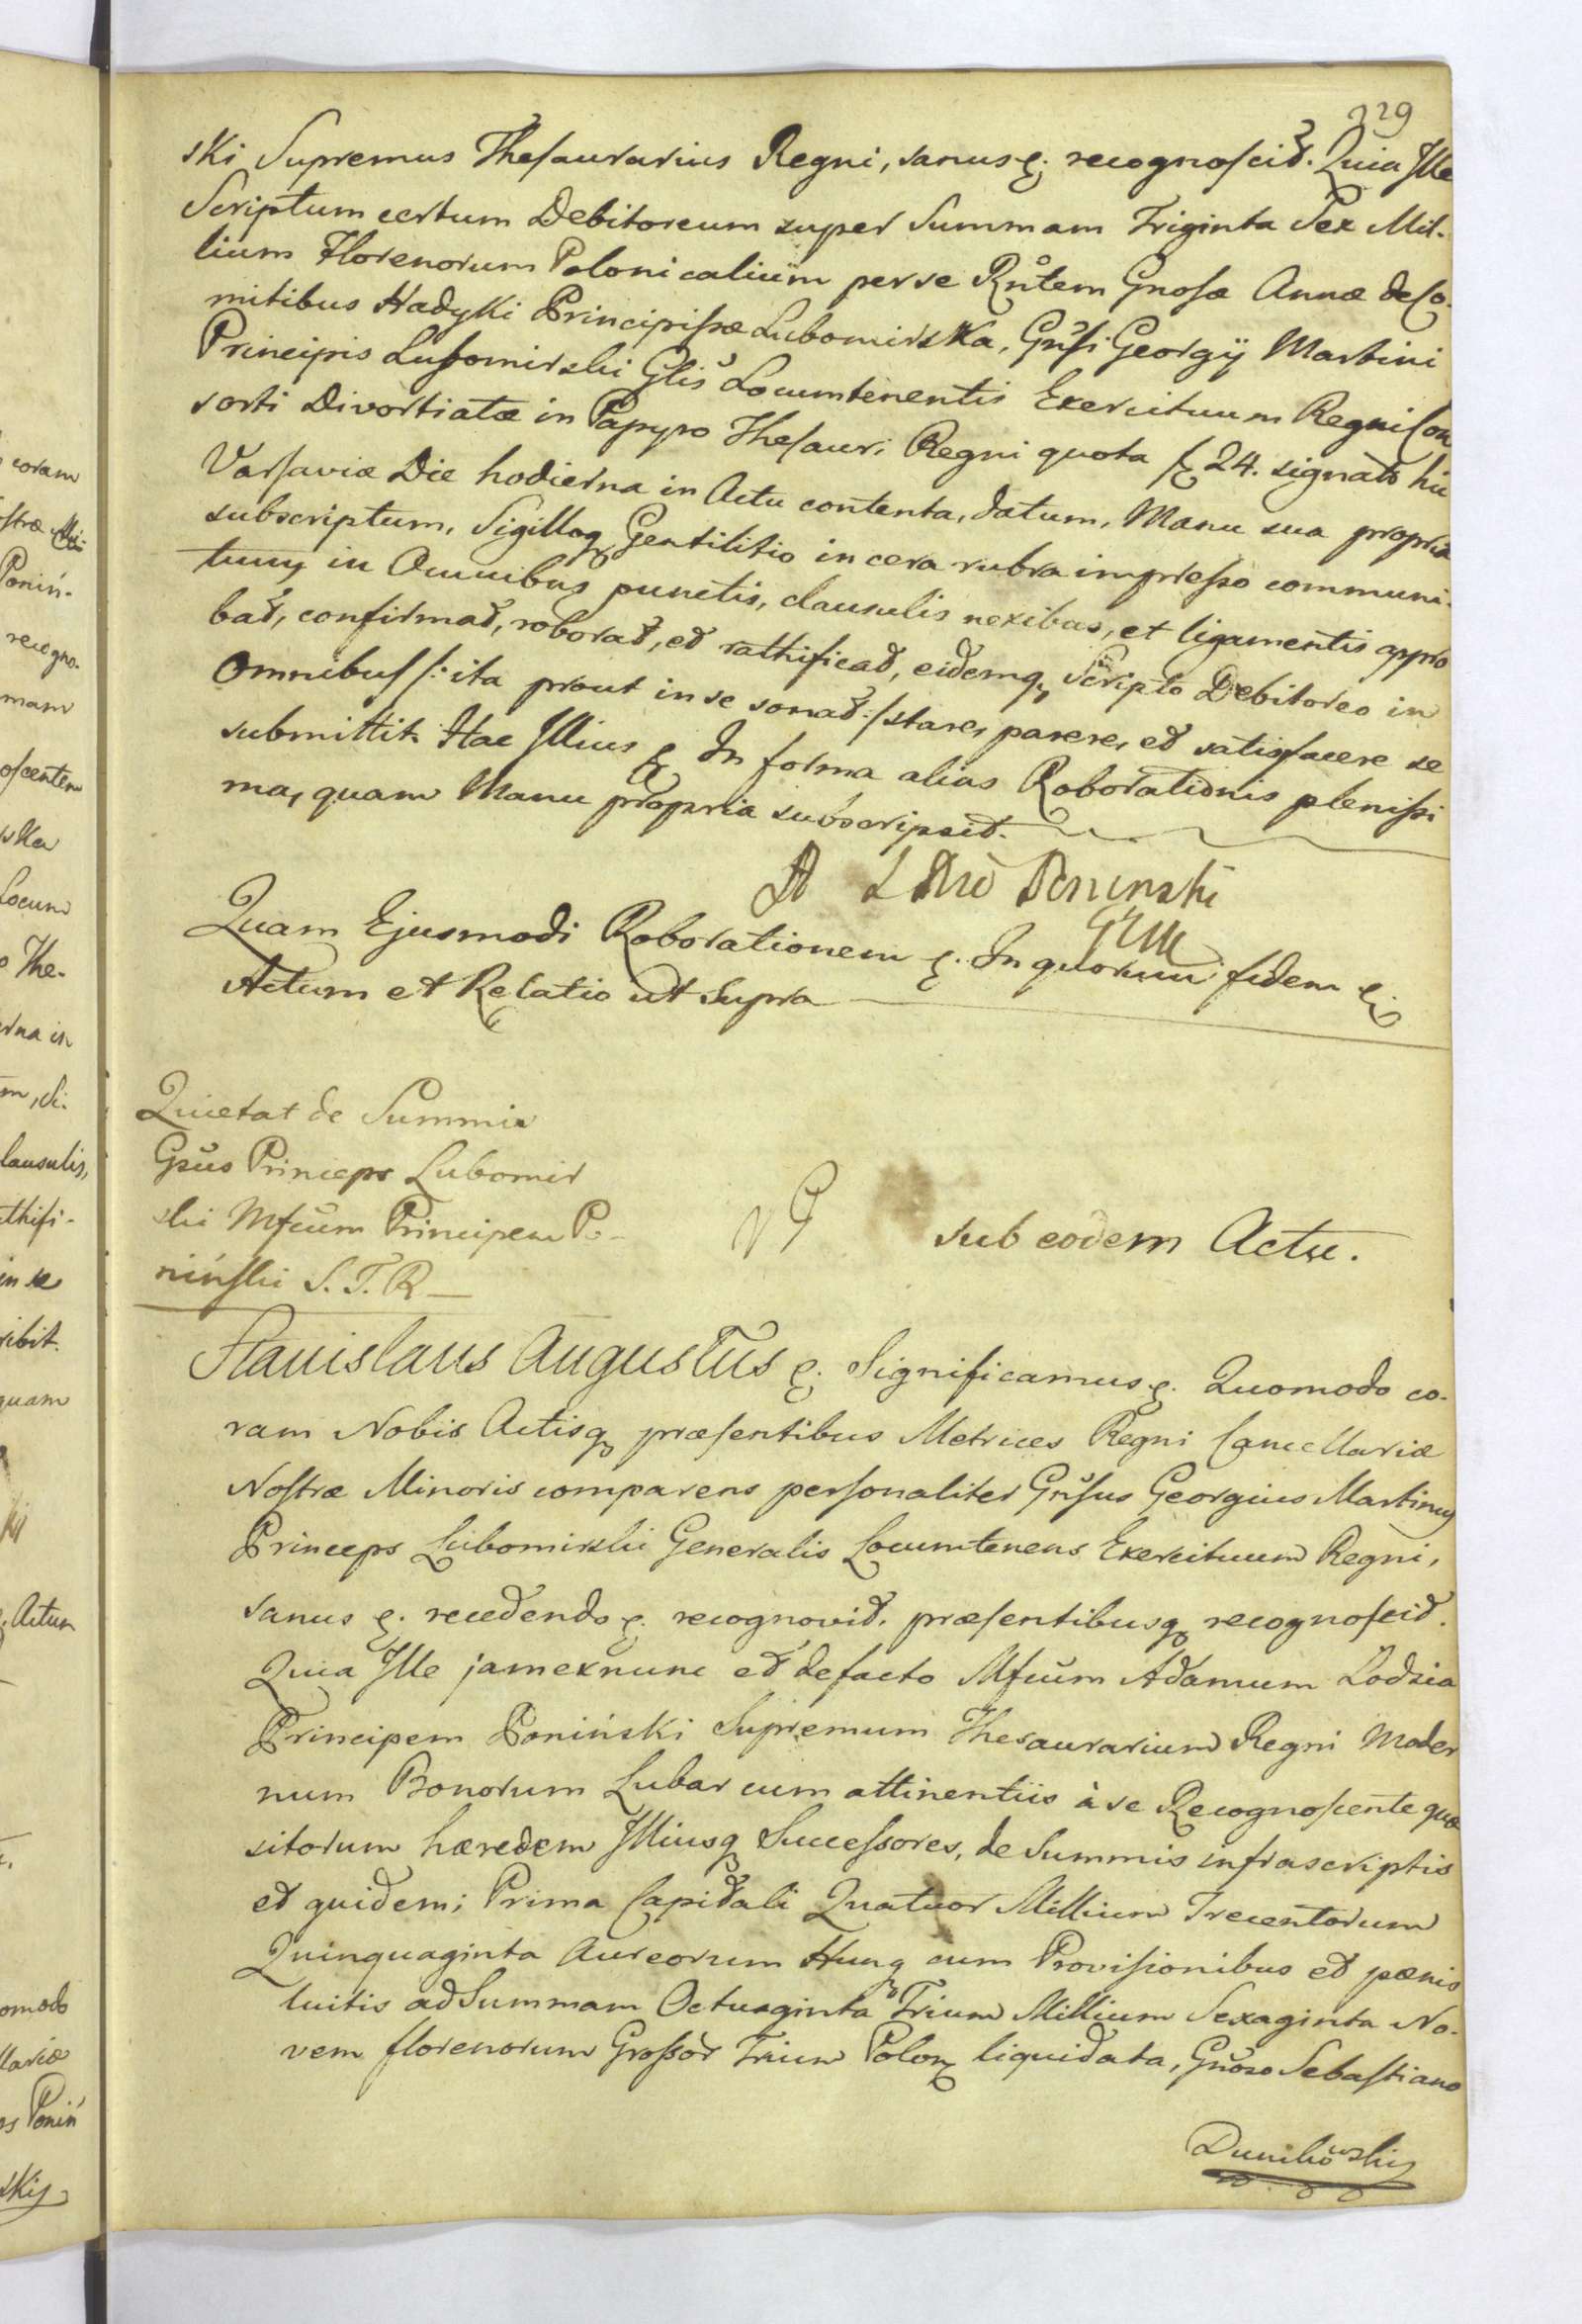 229
ski Supremus Thesaurarius Regni, sanus &. recognoscit. Quia Ille
Scriptum certum Debitoreum super Summam Triginta Sex Mil-
lium Florenorum Polonicalium per se Rntem Gnosæ Annæ de Co-
mitibus Hadyki Principissæ Lubomirska, Gnsi Georgij Martini
Principis Lubomirski Glis Locumtenentis Exercituum Regni Con
sorti Divortiatæ in Papyro Thesauri Regni quota f 24. signato hic
Varsaviæ Die hodierna in Actu contenta, datum, Manu sua propria
subscriptum, Sigilloq Gentilitio in cera rubra impresso communi-
tum, in Omnibus punctis, clausulis nexibus, et ligamentis appro
bat, confirmat, roborat, et rathificat, eidemq Scripto Debitoreo in
Omnibus /: ita prout in se sonat :/ stare, parere, et satisfacere se
submittit. Hac Illius & In forma alias Roborationis plenissi
ma, quam Manu propria subscripsit.
A Poninski
Quam Ejusmodi Roborationem &. In quorum fidem &
Actum et Relatio ut Supra
Quietat de Summis
Gsus Princeps Lubomir
ski Mfcum Principem Po-
niński S. T. R
sub eodem Actu.
Stanislaus Augustus &. Significamus &. Quomodo co-
ram Nobis Actisq præsentibus Metrices Regni Cancellariæ
Nostræ Minoris comparens personaliter Gnsus Georgius Martinus
Princeps Lubomirski Generalis Locumtenens Exercituum Regni,
sanus &. recedendo &. recognovit, præsentibusq recognoscit.
Quia Ille jam ex nunc et de facto Mfcum Adamum Lodzia
Principem Poniński Supremum Thesaurarium Regni Moder
num Bonorum Lubar cum attinentiis à se Recognoscente quæ
sitorum hæredem Illiusq Successores, de Summis infrascriptis
et quidem; Prima Capitali Quatuor Millium Trecentorum
Quinquaginta Aureorum Hung cum Provisionibus et pænis
luitis ad Summam Octuaginta Trium Millium Sexaginta No-
vem florenorum Grossor Trium Polon liquidata, Gnoso Sebastiano
Dunikowski